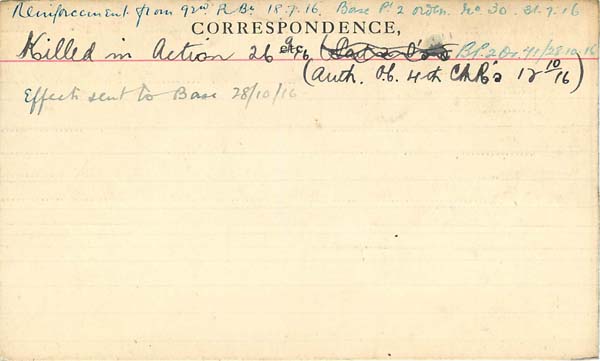 Reinforcement from 92nd R. Bn 18.7.16. Base Pt. 2 orders. No 30. 31.7.16
CORRESPONDENCE,
Killed in Action 26 9 16 B.P.2 Or. 41/28.10.16
(Auth. O.C. 4th C.M.R's 12 10/16)
Effects sent to Base 28/10/16